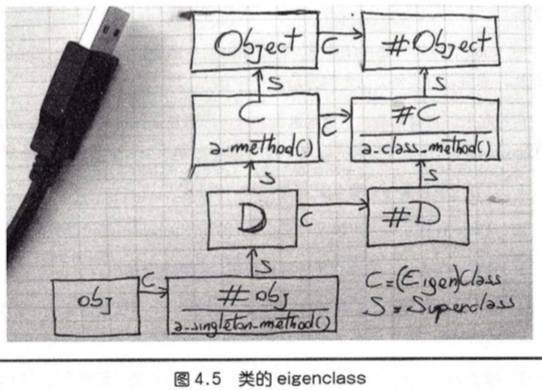 Object
C
#Object
S
S
C
a_method()
C
#C
a_class_method()
S
S
D
C
#D
S
obj
C
#obj
a_singleton_method()
C=(Eigen)Class
S=Superclass
图 4.5 类的 eigenclass